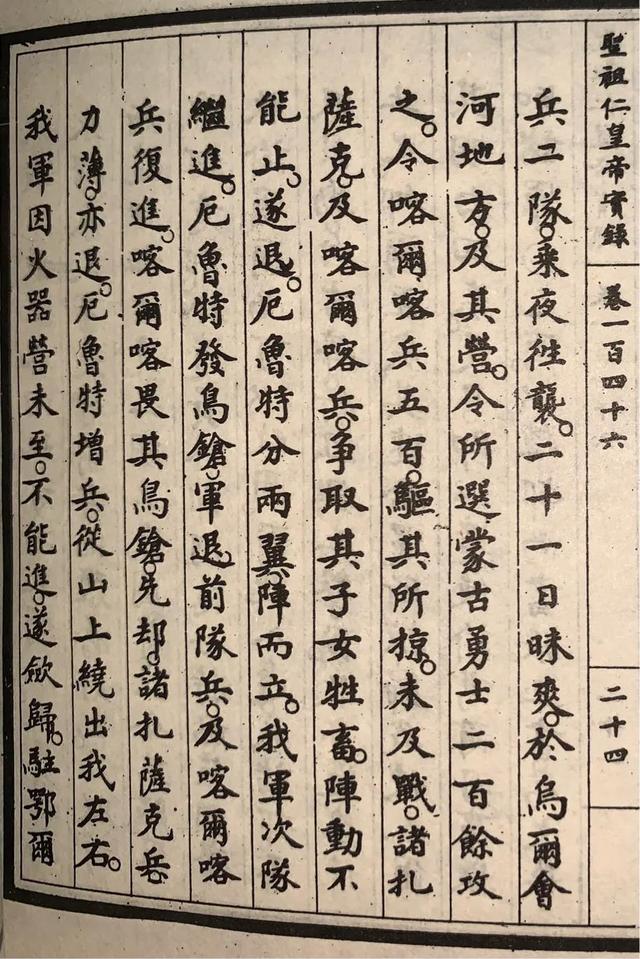 聖祖仁皇帝實錄 卷一百四十六 二十四
兵二隊。乘夜徃襲。二十一日昧爽。於烏爾會
河地方。及其營。令所選蒙古勇士二百餘攻
之。令喀爾喀兵五百。驅其所掠。未及戰。諸扎
薩克。及喀爾喀兵。爭取其子女牲畜。陣動不
能止。遂退。厄魯特分兩翼。陣而立。我軍次隊
繼進。厄魯特發鳥鎗。軍退前隊兵。及喀爾喀
兵復進。喀爾喀畏其鳥鎗。先却。諸扎薩克兵
力薄。亦退。厄魯特增兵。從山上繞出我左右。
我軍因火器營未至。不能進。遂斂歸。駐鄂爾